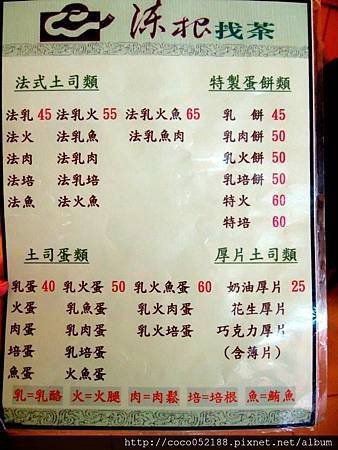 涑根找茶
法式土司類
法乳 45 法乳火 55 法乳火魚 65
法火 法乳魚 法乳魚肉
法肉 法乳肉
法培 法乳培
法魚 法火魚
特製蛋餅類
乳 餅 45
乳肉餅 50
乳火餅 50
乳培餅 50
特火 60
特培 60
土司蛋類
乳蛋 40 乳火蛋 50 乳火魚蛋 60
火蛋 乳魚蛋 乳火肉蛋
肉蛋 乳肉蛋 乳火培蛋
培蛋 乳培蛋
魚蛋 火魚蛋
厚片土司類
奶油厚片 25
花生厚片
巧克力厚片
(含薄片)
乳=乳酪 火=火腿 肉=肉鬆 培=培根 魚=鮪魚
http://coco052188.pixnet.net/album